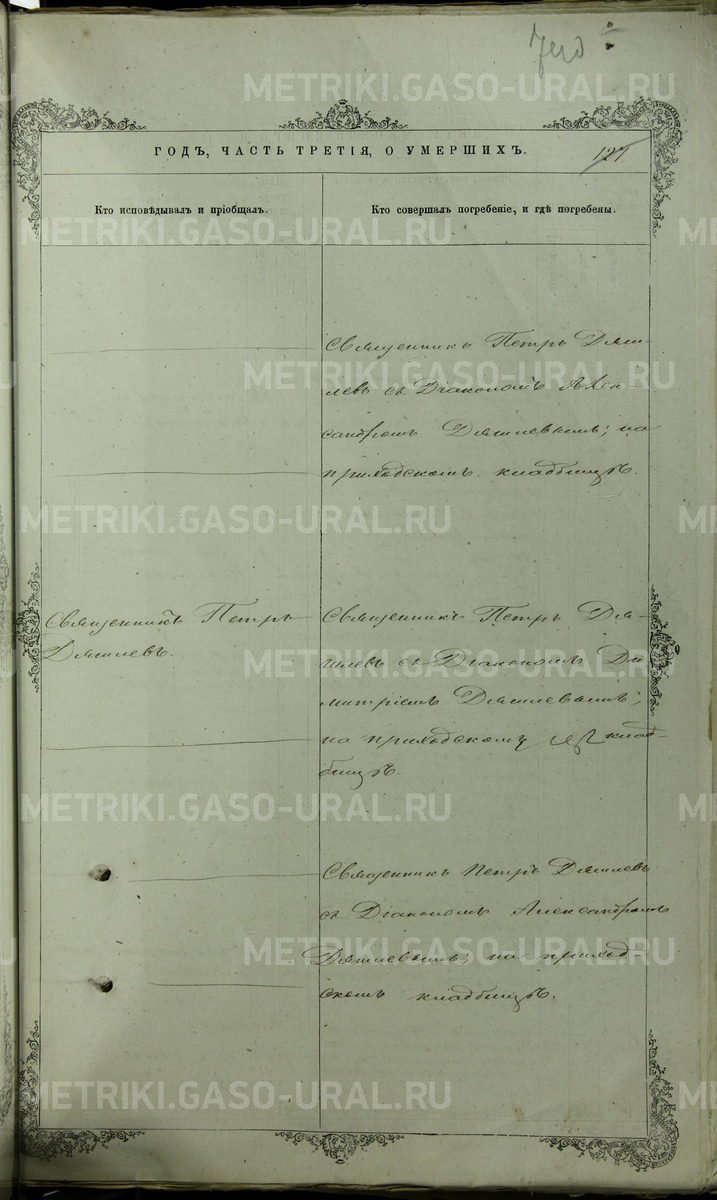 METRIKI.GASO-URAL.RU
ГОДЪ, ЧАСТЬ ТРЕТІЯ, О УМЕРШИХЪ.
127
Кто исповѣдывалъ и пріобщалъ.
Кто совершалъ погребеніе, и гдѣ погребены.
Священникъ Петръ Дяги-
левъ съ Діакономъ Алек-
сандромъ Дягилевымъ; на
приходскомъ кладбищѣ.
Священникъ Петръ
Дягилевъ.
Священникъ Петръ Дя-
гилевъ съ Діакономъ Ди
митріемъ Дягилевымъ;
на приходскому клад-
бищѣ.
Священникъ Петръ Дягилевъ
съ Діакономъ Александромъ
Дягилевымъ; на приход-
скомъ кладбищѣ.